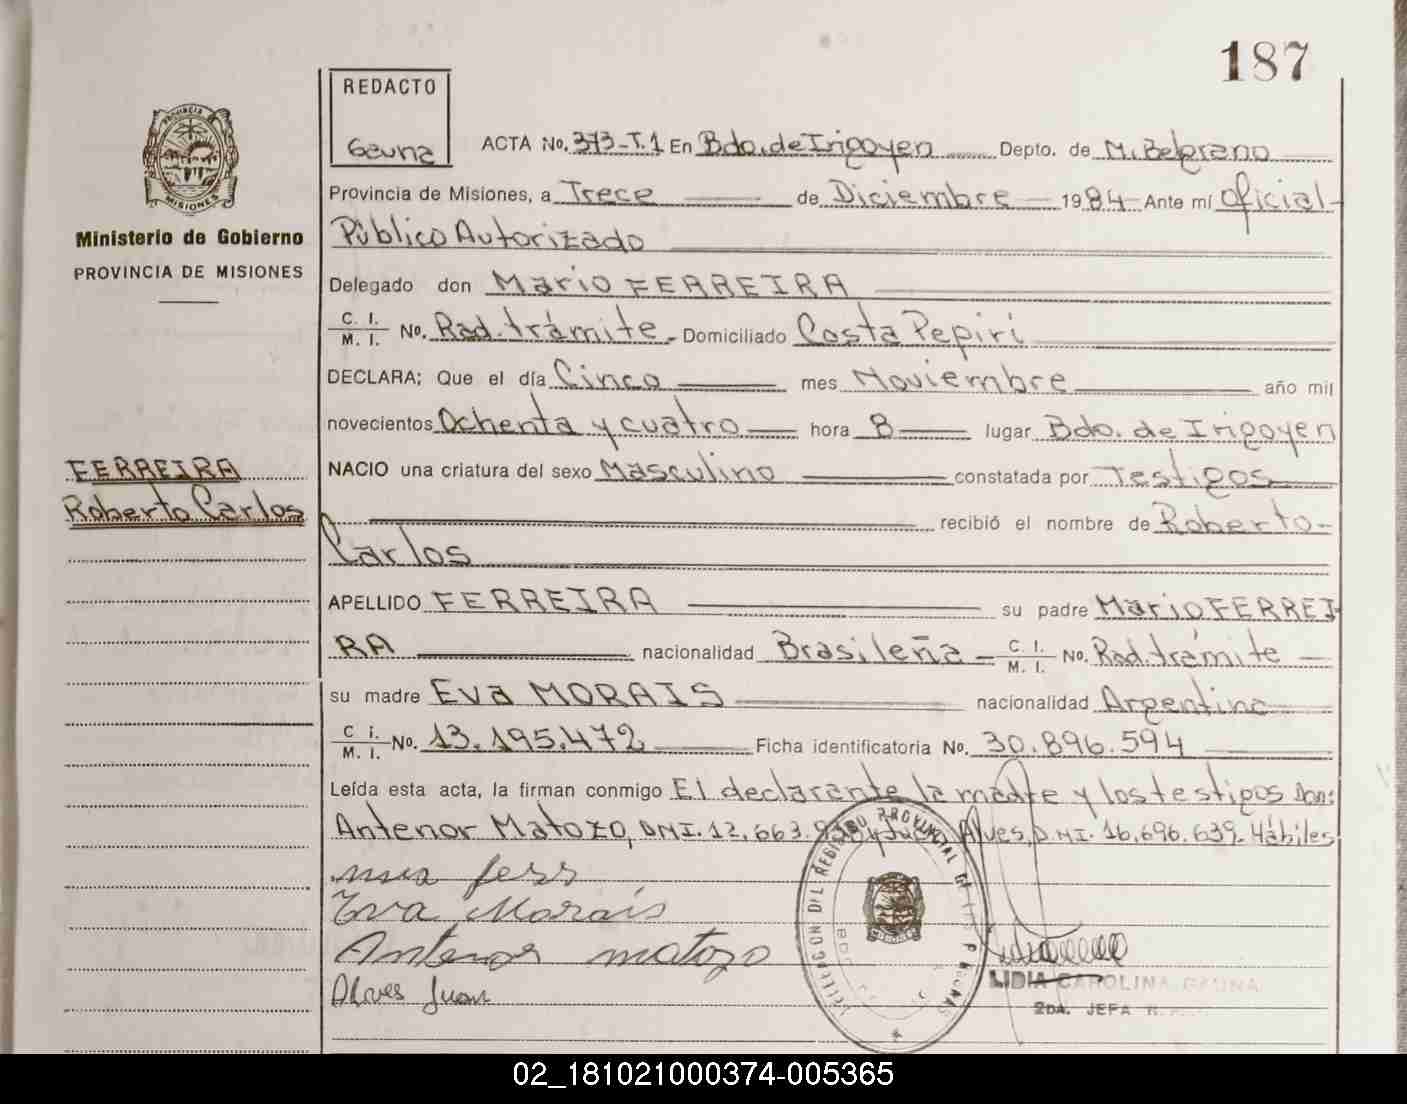 187
REDACTO
Gauna
ACTA No. 373-T.1 En Bdo. de Irigoyen Depto. de M. Belgrano
Provincia de Misiones, a Trece de Diciembre 1984 Ante mí Oficial
Público Autorizado
PROVINCIA DE MISIONES
Ministerio de Gobierno
PROVINCIA DE MISIONES
Delegado don Mario FERREIRA
C. I. M. I. No. Rad. trámite - Domiciliado Costa Pepirí
DECLARA; Que el día Cinco mes Noviembre año mil
novecientos Ochenta y cuatro hora 8 lugar Bdo. de Irigoyen
NACIO una criatura del sexo Masculino constatada por Testigos
FERREIRA
Roberto Carlos
recibió el nombre de Roberto-
Carlos
APELLIDO FERREIRA su padre Mario FERREI
RA nacionalidad Brasileña - C. I. M. I. No. Rad. trámite -
su madre Eva MORAIS nacionalidad Argentina
C. i. M. I. No. 13.195.472 Ficha identificatoria No. 30.896.594
Leída esta acta, la firman conmigo El declarante la madre y los testigos Don:
Antenor Matozo, DNI. 12.663. Alves, DNI. 16.696.639. Hábiles
Eva Morais
Antenor matozo
Alves Juan
DELEGACION DEL REGISTRO PROVINCIAL DE LAS PERSONAS
LIDIA CAROLINA GAUNA
2DA. JEFA
02_181021000374-005365